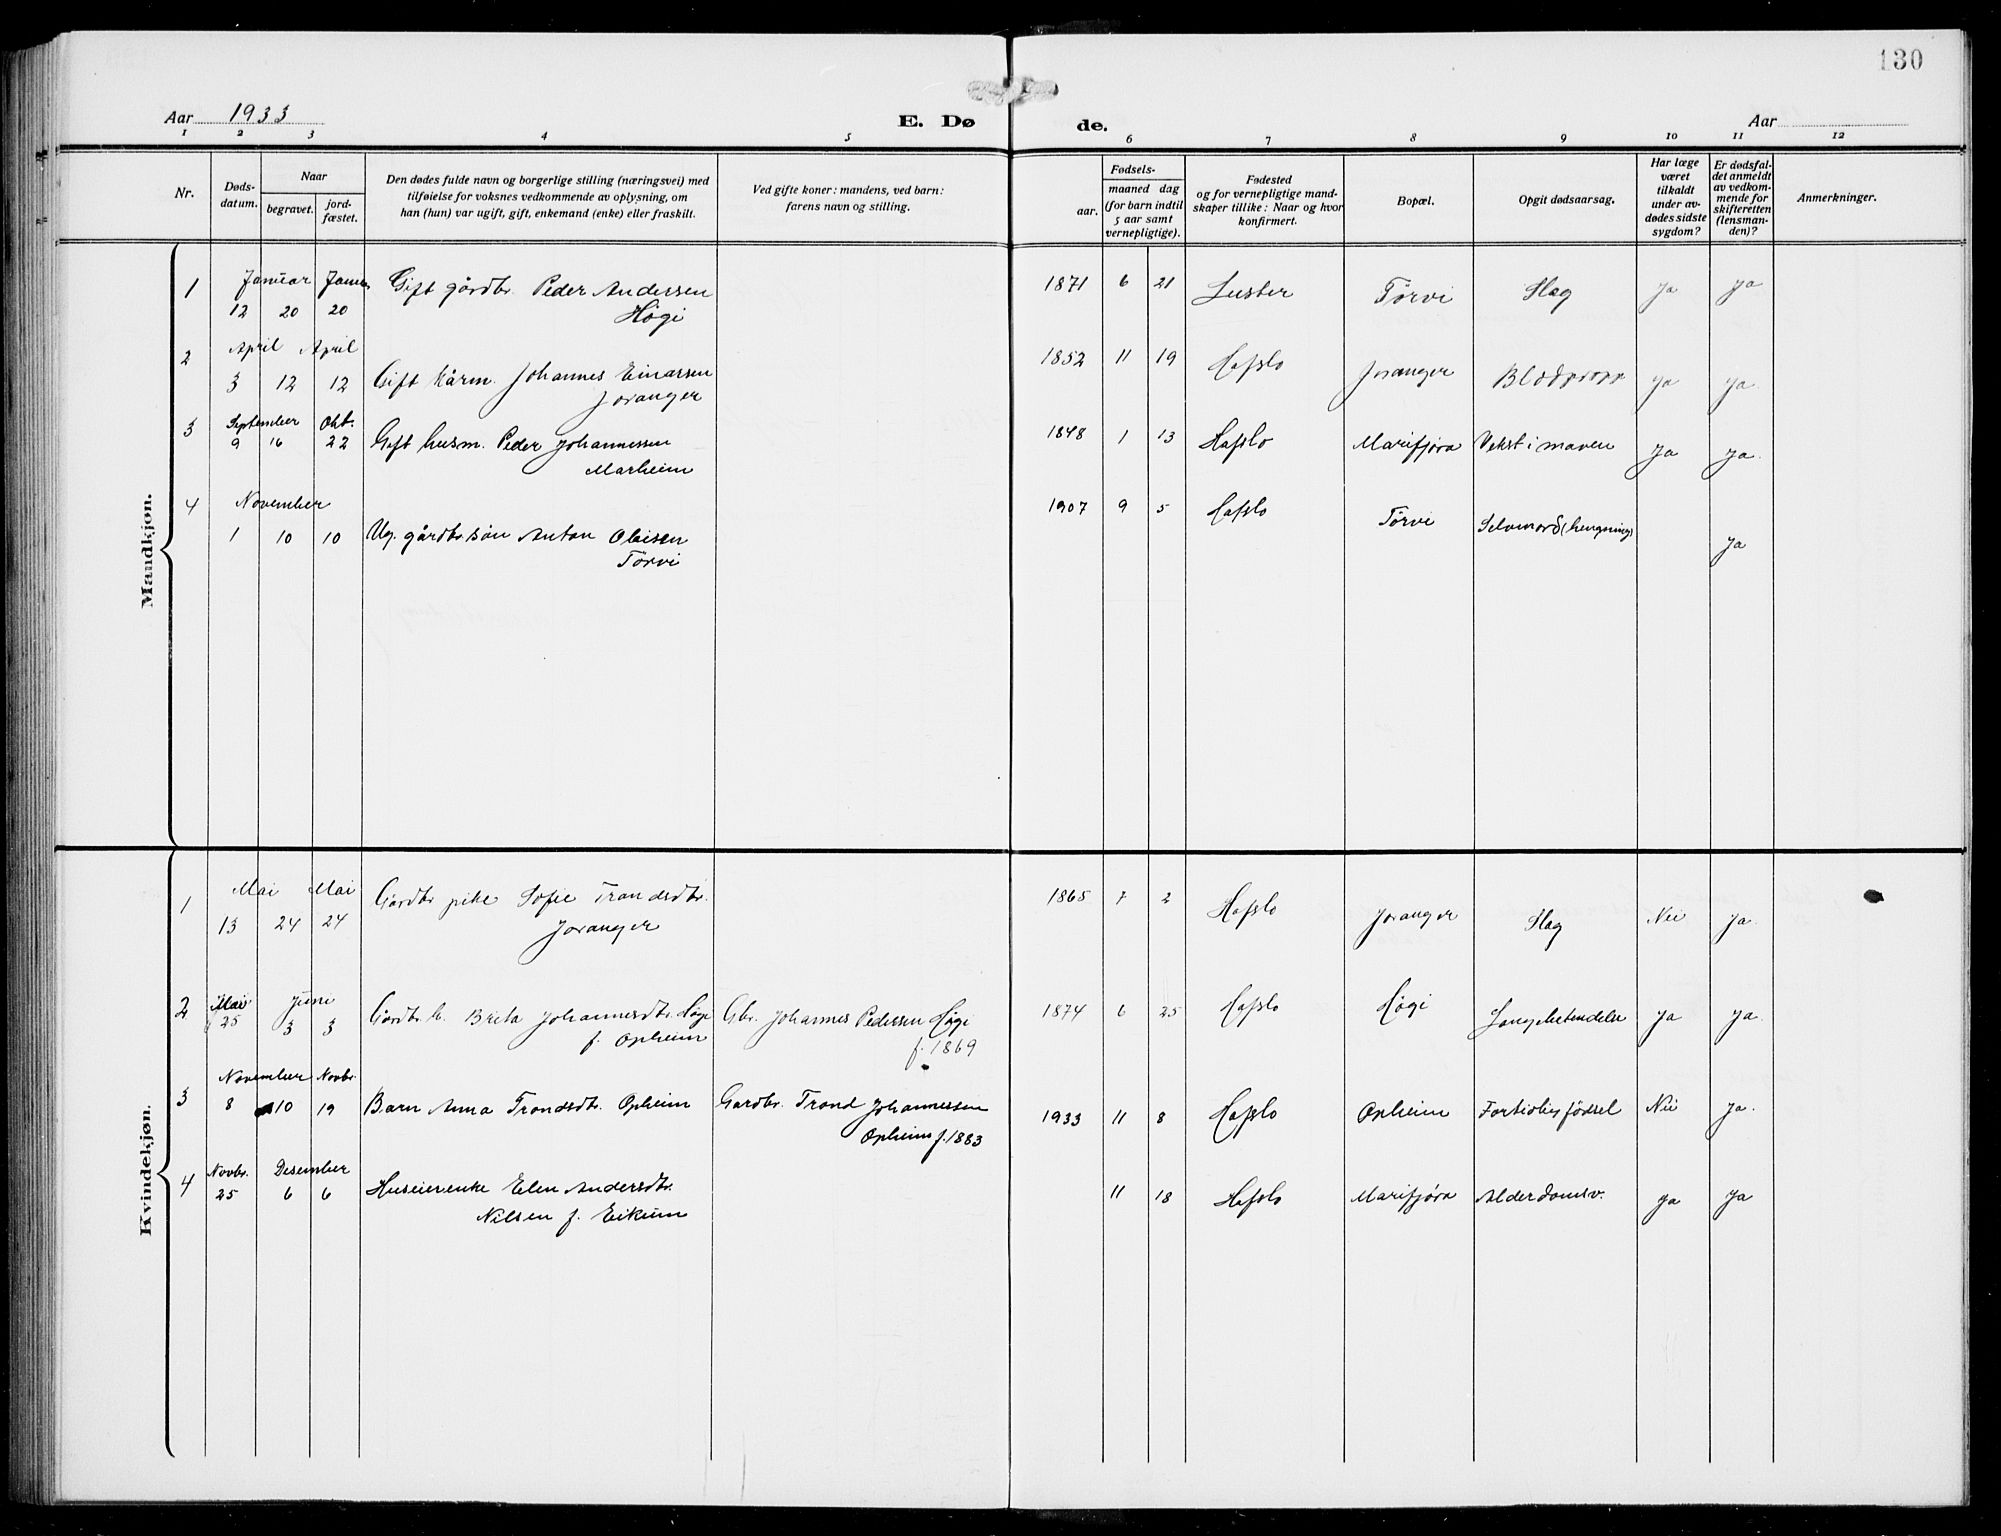 130
Aar 1933
E. Dø
de.
Aar
1 2 3 4 5 6 7 8 9 10 11 12
Nr.
Døds-
datum.
Naar
begravet.
jord-
fæstet.
Den dødes fulde navn og borgerlige stilling (næringsvei) med
tilføielse for voksnes vedkommende av oplysning, om
han (hun) var ugift, gift, enkemand (enke) eller fraskilt.
Ved gifte koner: mandens, ved barn:
farens navn og stilling.
Fødsels-
aar.
maaned dag
(for barn indtil
5 aar samt
vernepligtige).
Fødested
og for vernepligtige mand-
skaper tillike: Naar og hvor
konfirmert.
Bopæl.
Opgit dødsaarsag.
Har læge
været
tilkaldt
under av-
dødes sidste
sygdom?
Er dødsfal-
det anmeldt
av vedkom-
mende for
skifteretten
(lensman-
den)?
Anmerkninger.
Mandkjøn.
1 Januar Janu. Gift gårdbr. Peder Andersen 1871 6 21 Luster Törvi Slag Ja Ja
12 20 20 Högi
2 April April 1852 11 19 Hafslo
3 12 12 Gift kårm. Johannes Einarsen Joranger Blodpropp Ja Ja.
Joranger
3 September Okt. 1848 1 13 Hafslo Marifjøra Vekst i maven Ja Ja.
9 16 22 Gift husm. Peder Johannessen
Marheim
4 November 1907 9 5 Hafslo Törvi Selvmord (hengning)
1 10 10 Ug. gårdbr. sön Anton Olsen Ja
Törvi
Kvindekjøn.
1 Mai Mai Gårdbr pike Sofie Trondsdtr. 1865 7 2 Hafslo Joranger Slag Nei Ja.
13 24 24 Joranger
2 Mai Juni Gårdbr. k. Brita Johannesdtr. Høgi Gbr. Johannes Pedersen Høgi 1874 6 25 Hafslo Høgi Ja Ja.
25 3 3 f. Opheim f. 1869
3 November Novbr.
8 10 19 Barn Anna Trondsdtr. Opheim Gardbr. Trond Johannessen 1933 11 8 Hafslo Opheim Fortidlig födsel Nei Ja.
Opheim f. 1883
4 Novbr. Desember
25 6 6 Huseierenke Elen Andersdtr. 11 18 Hafslo Marifjøra Alderdomsv. Ja Ja
Nilsen f. Eikum